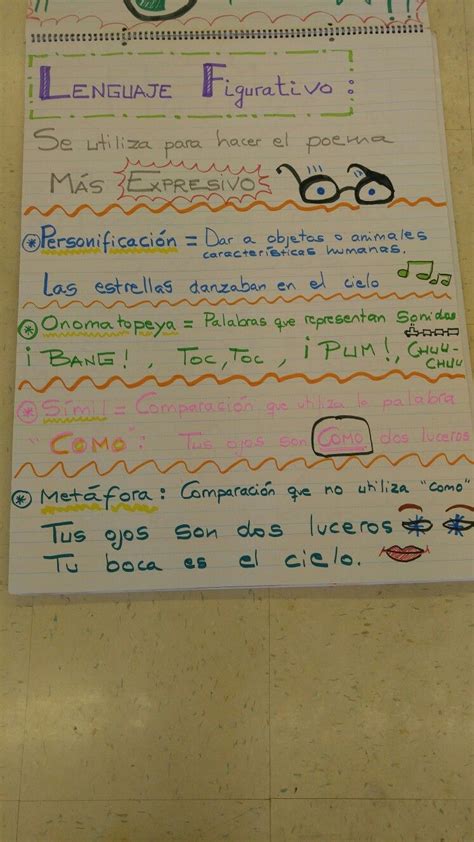 LENGUAJE FIGURATIVO:
Se utiliza para hacer el poema
MÁS EXPRESIVO
* Personificación = Dar a objetos o animales
características humanas.
Las estrellas danzaban en el cielo
* Onomatopeya = Palabras que representan sonidos
¡BANG!, TOC, TOC, ¡PUM!, CHUU-
CHUU
* Símil = Comparación que utiliza la palabra
"COMO": Tus ojos son COMO dos luceros
* Metáfora: Comparación que no utiliza "como"
Tus ojos son dos luceros
Tu boca es el cielo.